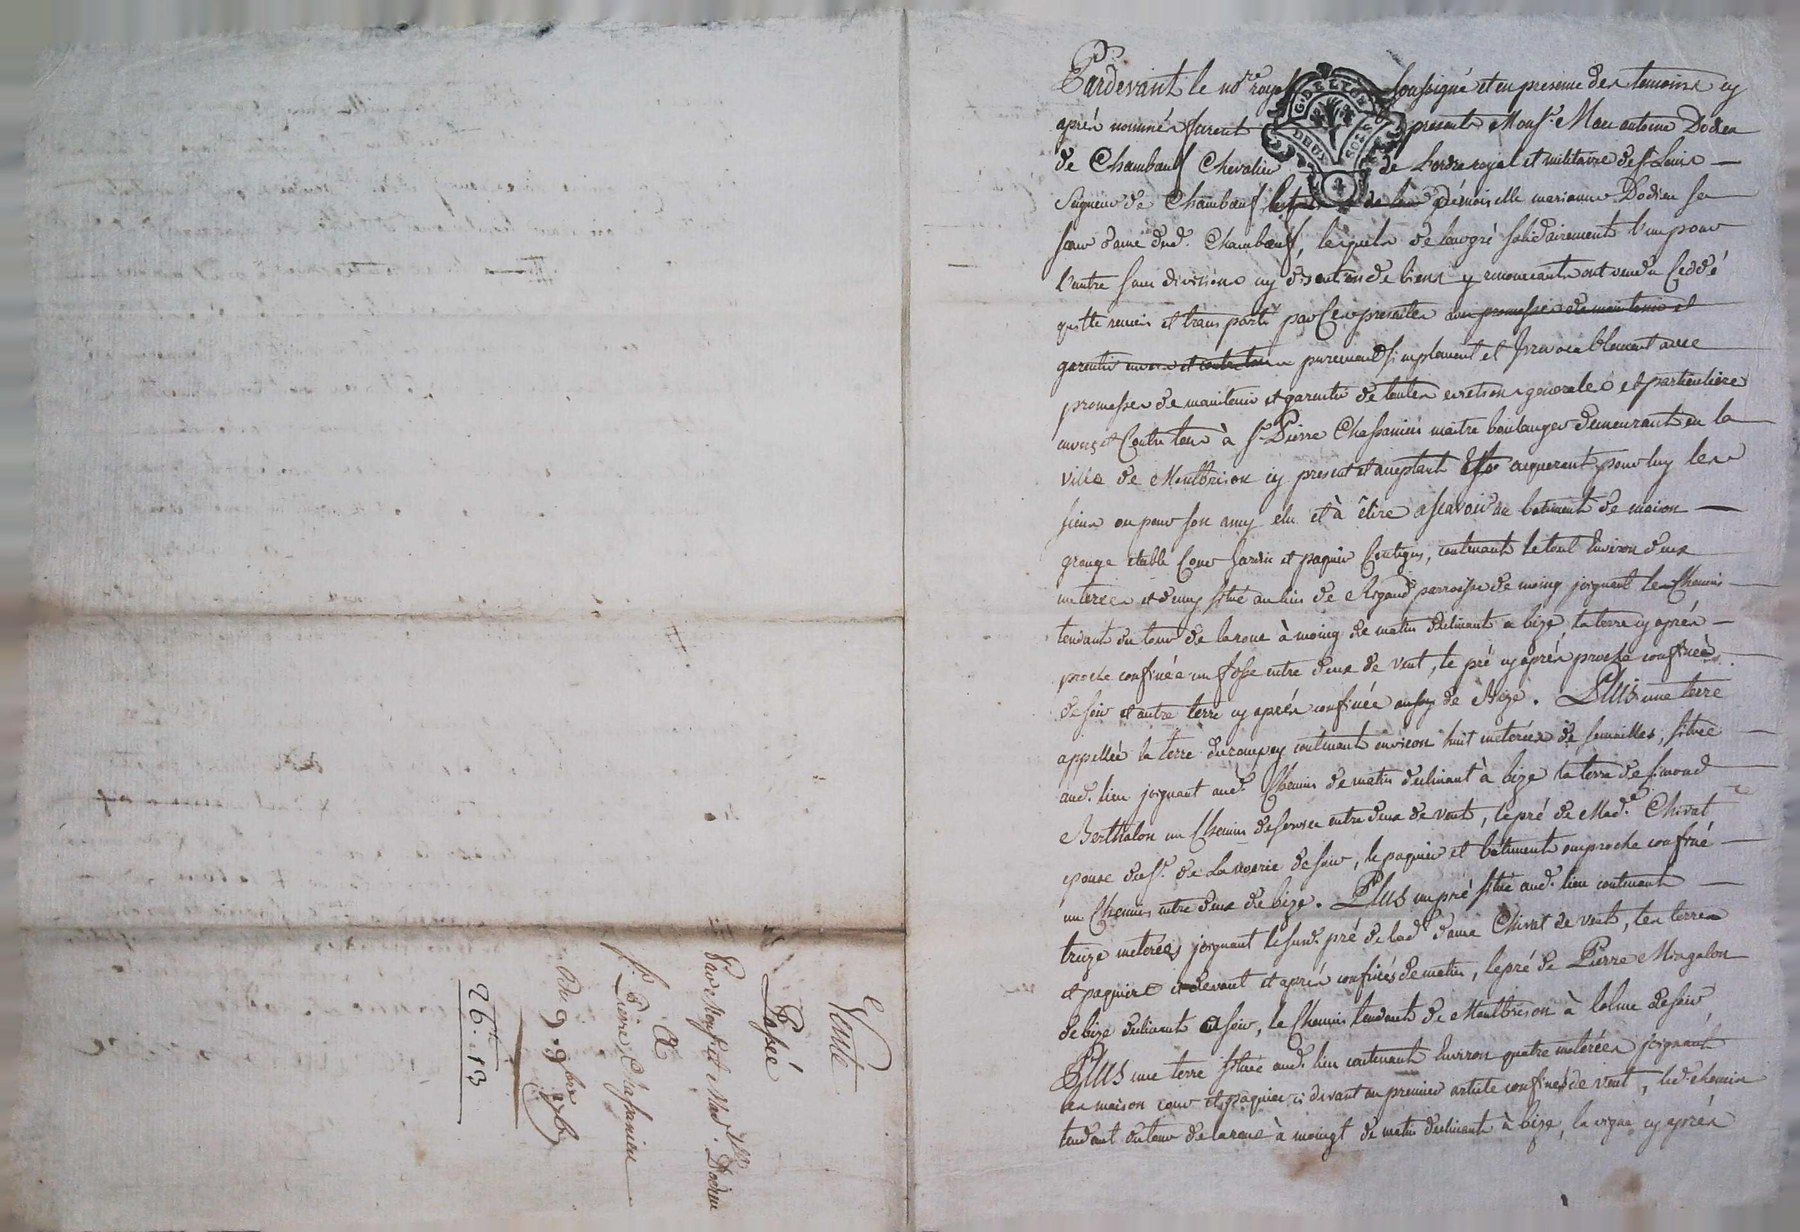 Pardevant le no.re royal soussigné et en presence des temoins cy
après nommés furent presents Monsr. Marc antoine Dodieu
de Chambœuf Chevalier de l'ordre royal et militaire de St. Louis —
Seigneur de Chambœuf Demoiselle marianne Dodieu sa
sœur dame dud. Chambœuf, lesquels de leur gré solidairement l'un pour
l'autre sans division ny discution de biens y renonceants ont vendu Ceddé
quitté remis et transporté par Ces presentes avec promesse de maintenir et
garentir envers et contre tous purement simplement et irrevocablement avec
promesse de maintenir et garentir de toutes evictions generale et particulière
envers et Contre tous à Sr. Pierre Chassanieu maitre boulanger demeurant en la
ville de Montbrison cy present et acceptant acquerant pour luy les
siens ou pour son amy elu et à êlire asçavoir un batiment de maison —
grange étable Cour Jardin et paquier Contigus, contenant le tout Environ deux
meterées et demy situé au lieu de Rigaud parroisse de moing joignant le Chemin —
tendant du tour de laroue à moing de matin declinant a bize la terre cy après —
proche confinée un fossé entre deux de vent, le pré cy après proche confiné —
de soir et autre terre cy après confinée aussy de Bize. PLUS une terre
appellée la terre contenant environ huit meterées de semailles, située —
aud. lieu joignant aud. Chemin de matin declinant à bize la terre de Simond
Berthalon un Chemin de service entre deux de vent, le pré de Made. Chirat
epouse du Sr. de La noerie de soir, le paquier et bâtiment proche confiné —
un Chemin entre deux de bize. PLUS un pré situé aud. lieu contenant —
treize meterées joignant le susd. pré de lad. dame Chirat de vent, les terres
et paquiers cy devant et après confinés de matin, le pré de Pierre Mingalon
de bize declinant a soir, le Chemin tendant de Montbrison à de soir,
PLUS une terre située aud. lieu contenant Environ quatre meterées joignant
les maison cour et paquier ci devant au premier article confinés de vent, led. chemin
tendant du tour de laroue à moingt de matin declinants à bize, la vigne cy après
Vente
Passée
Par Monsr. et Made.lle Dodieu
A
Sr. Pierre Chassanieu
du 9. 9bre 176
26.tt 13